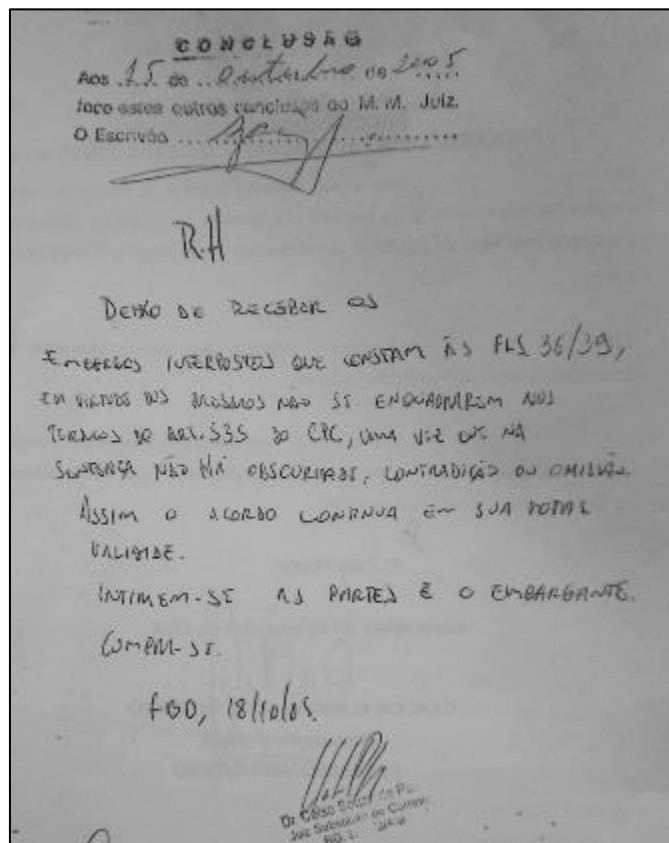 CONCLUSÃO
Aos 15 de Outubro de 2005
faço estes autos conclusos ao M. M. Juiz.
O Escrivão
R.H
DEIXO DE RECEBER OS
EMBARGOS INTERPOSTOS QUE CONSTAM ÀS FLS 36/39,
EM VIRTUDE DOS MESMOS NÃO SE ENQUADRAREM NOS
TERMOS DO ART. 535 DO CPC, UMA VEZ QUE NA
SENTENÇA NÃO HÁ OBSCURIDADE, CONTRADIÇÃO OU OMISSÃO.
ASSIM O ACORDO CONTINUA EM SUA TOTAL
VALIDADE.
INTIMEM-SE AS PARTES E O EMBARGANTE.
CUMPRA-SE.
FGO, 18/10/05.
Dr. Celso
Juiz Substituto de
RG.